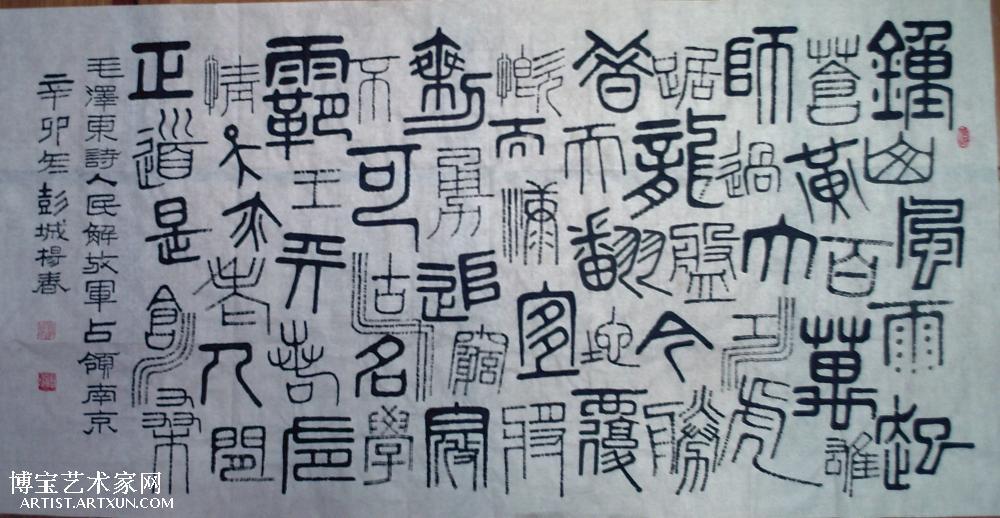 鍾山風雨起
蒼黃百萬雄
師過大江虎
踞龍盤今勝
昔天翻地覆
慨而慷宜將
剩勇追窮寇
不可沽名學
霸王天若有
情天亦老人間
正道是滄桑
毛澤東詩人民解放軍占領南京
辛卯年彭城楊春
博宝艺术家网
ARTIST.ARTXUN.COM